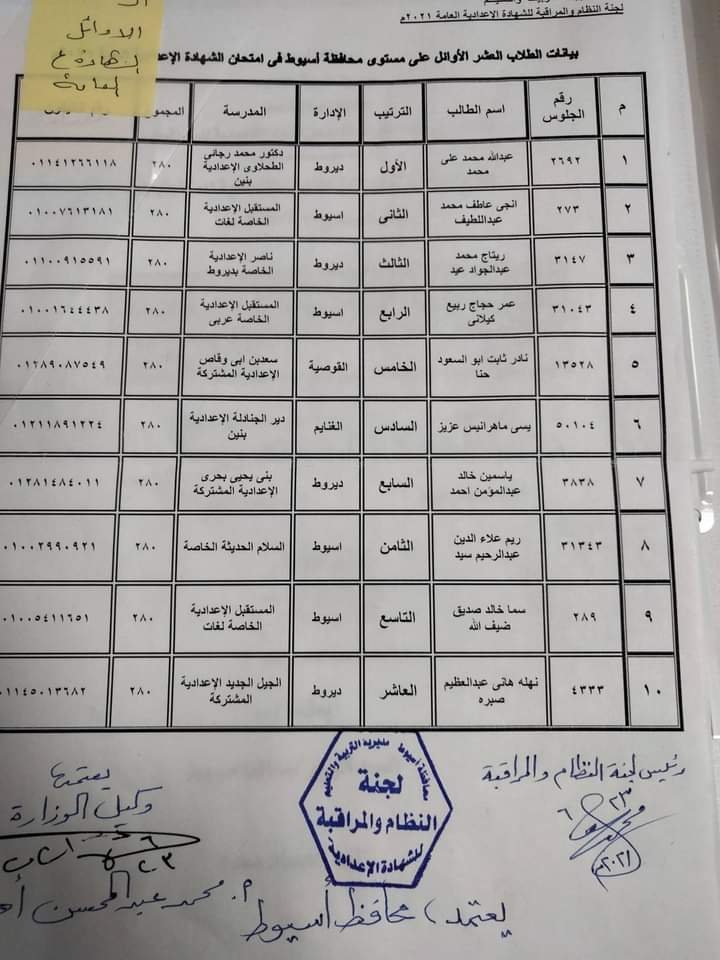 لجنة النظام والمراقبة للشهادة الإعدادية العامة ٢٠٢١م
الاوائل
الشهادة ع
العامة
بيانات الطلاب العشر الأوائل على مستوى محافظة أسيوط فى امتحان الشهادة
م رقم الجلوس اسم الطالب الترتيب الإدارة المدرسة المجموع
١ ٢٦٩٢ عبدالله محمد على محمد الأول ديروط دكتور محمد رجائى الطحلاوى الإعدادية بنين ٢٨٠ ٠١١٤١٢٦٦١١٨
٢ ٢٧٣ انجى عاطف محمد عبداللطيف الثانى اسيوط المستقبل الإعدادية الخاصة لغات ٢٨٠ ٠١٠٠٧٦١٣١٨١
٣ ٣١٤٧ ريتاج محمد عبدالجواد عيد الثالث ديروط ناصر الإعدادية الخاصة بديروط ٢٨٠ ٠١١٠٠٩١٥٥٩١
٤ ٣١٠٤٣ عمر حجاج ربيع كيلانى الرابع اسيوط المستقبل الإعدادية الخاصة عربى ٢٨٠ ٠١٠٠١٦٤٤٤٣٨
٥ ١٣٥٢٨ نادر ثابت ابو السعود حنا الخامس القوصية سعدبن ابى وقاص الإعدادية المشتركة ٢٨٠ ٠١٢٨٩٠٨٧٥٤٩
٦ ٥٠١٠٤ يسى ماهرانيس عزيز السادس الغنايم دير الجنادلة الإعدادية بنين ٢٨٠ ٠١٢١١٨٩١٢٢٤
٧ ٣٨٣٨ ياسمين خالد عبدالمؤمن احمد السابع ديروط بنى يحيى بحرى الإعدادية المشتركة ٢٨٠ ٠١٢٨١٤٨٤٠١١
٨ ٣١٣٤٣ ريم علاء الدين عبدالرحيم سيد الثامن اسيوط السلام الحديثة الخاصة ٢٨٠ ٠١٠٠٢٩٩٠٩٢١
٩ ٢٨٩ سما خالد صديق ضيف الله التاسع اسيوط المستقبل الإعدادية الخاصة لغات ٢٨٠ ٠١٠٠٥٤١١٦٥١
١٠ ٤٣٣٣ نهله هانى عبدالعظيم صبره العاشر ديروط الجيل الجديد الإعدادية المشتركة ٢٨٠ ٠١١٤٥٠١٣٦٨٢
رئيس لجنة النظام والمراقبة
٦/٢٣
٢٠٢١م
محافظة أسيوط مديرية التربية والتعليم
لجنة
النظام والمراقبة
للشهادة الإعدادية
يعتمد،
وكيل الوزارة
أ. محمد عبدالمحسن
يعتمد، محافظ أسيوط